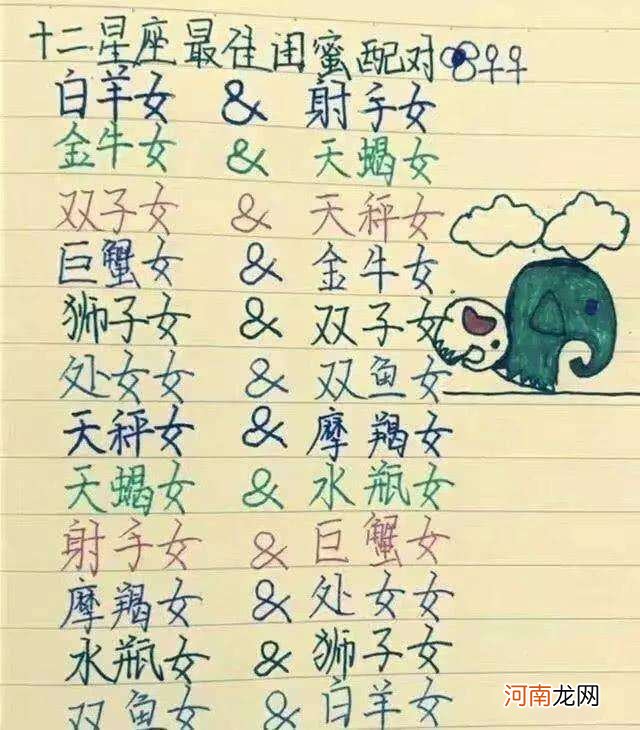 十二星座最佳闺蜜配对
白羊女 & 射手女
金牛女 & 天蝎女
双子女 & 天秤女
巨蟹女 & 金牛女
狮子女 & 双子女
处女女 & 双鱼女
天秤女 & 摩羯女
天蝎女 & 水瓶女
射手女 & 巨蟹女
摩羯女 & 处女女
水瓶女 & 狮子女
双鱼女 & 白羊女
河南龙网